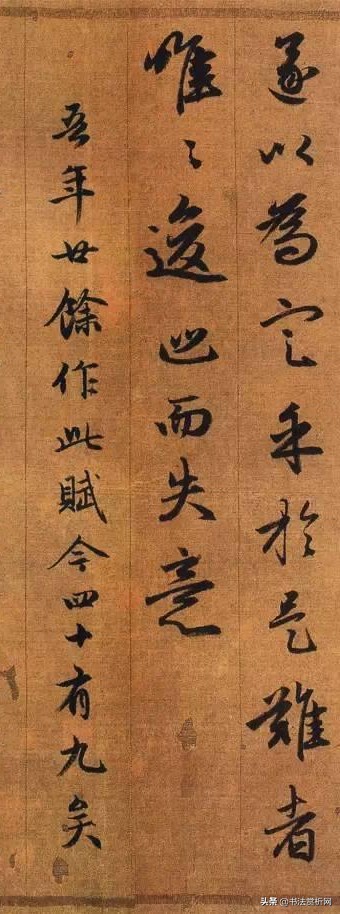 遂以為定乎於是難者
唯〻逡巡而失意
吾年廿餘作此賦今四十有九矣
头条 @书法赏析网